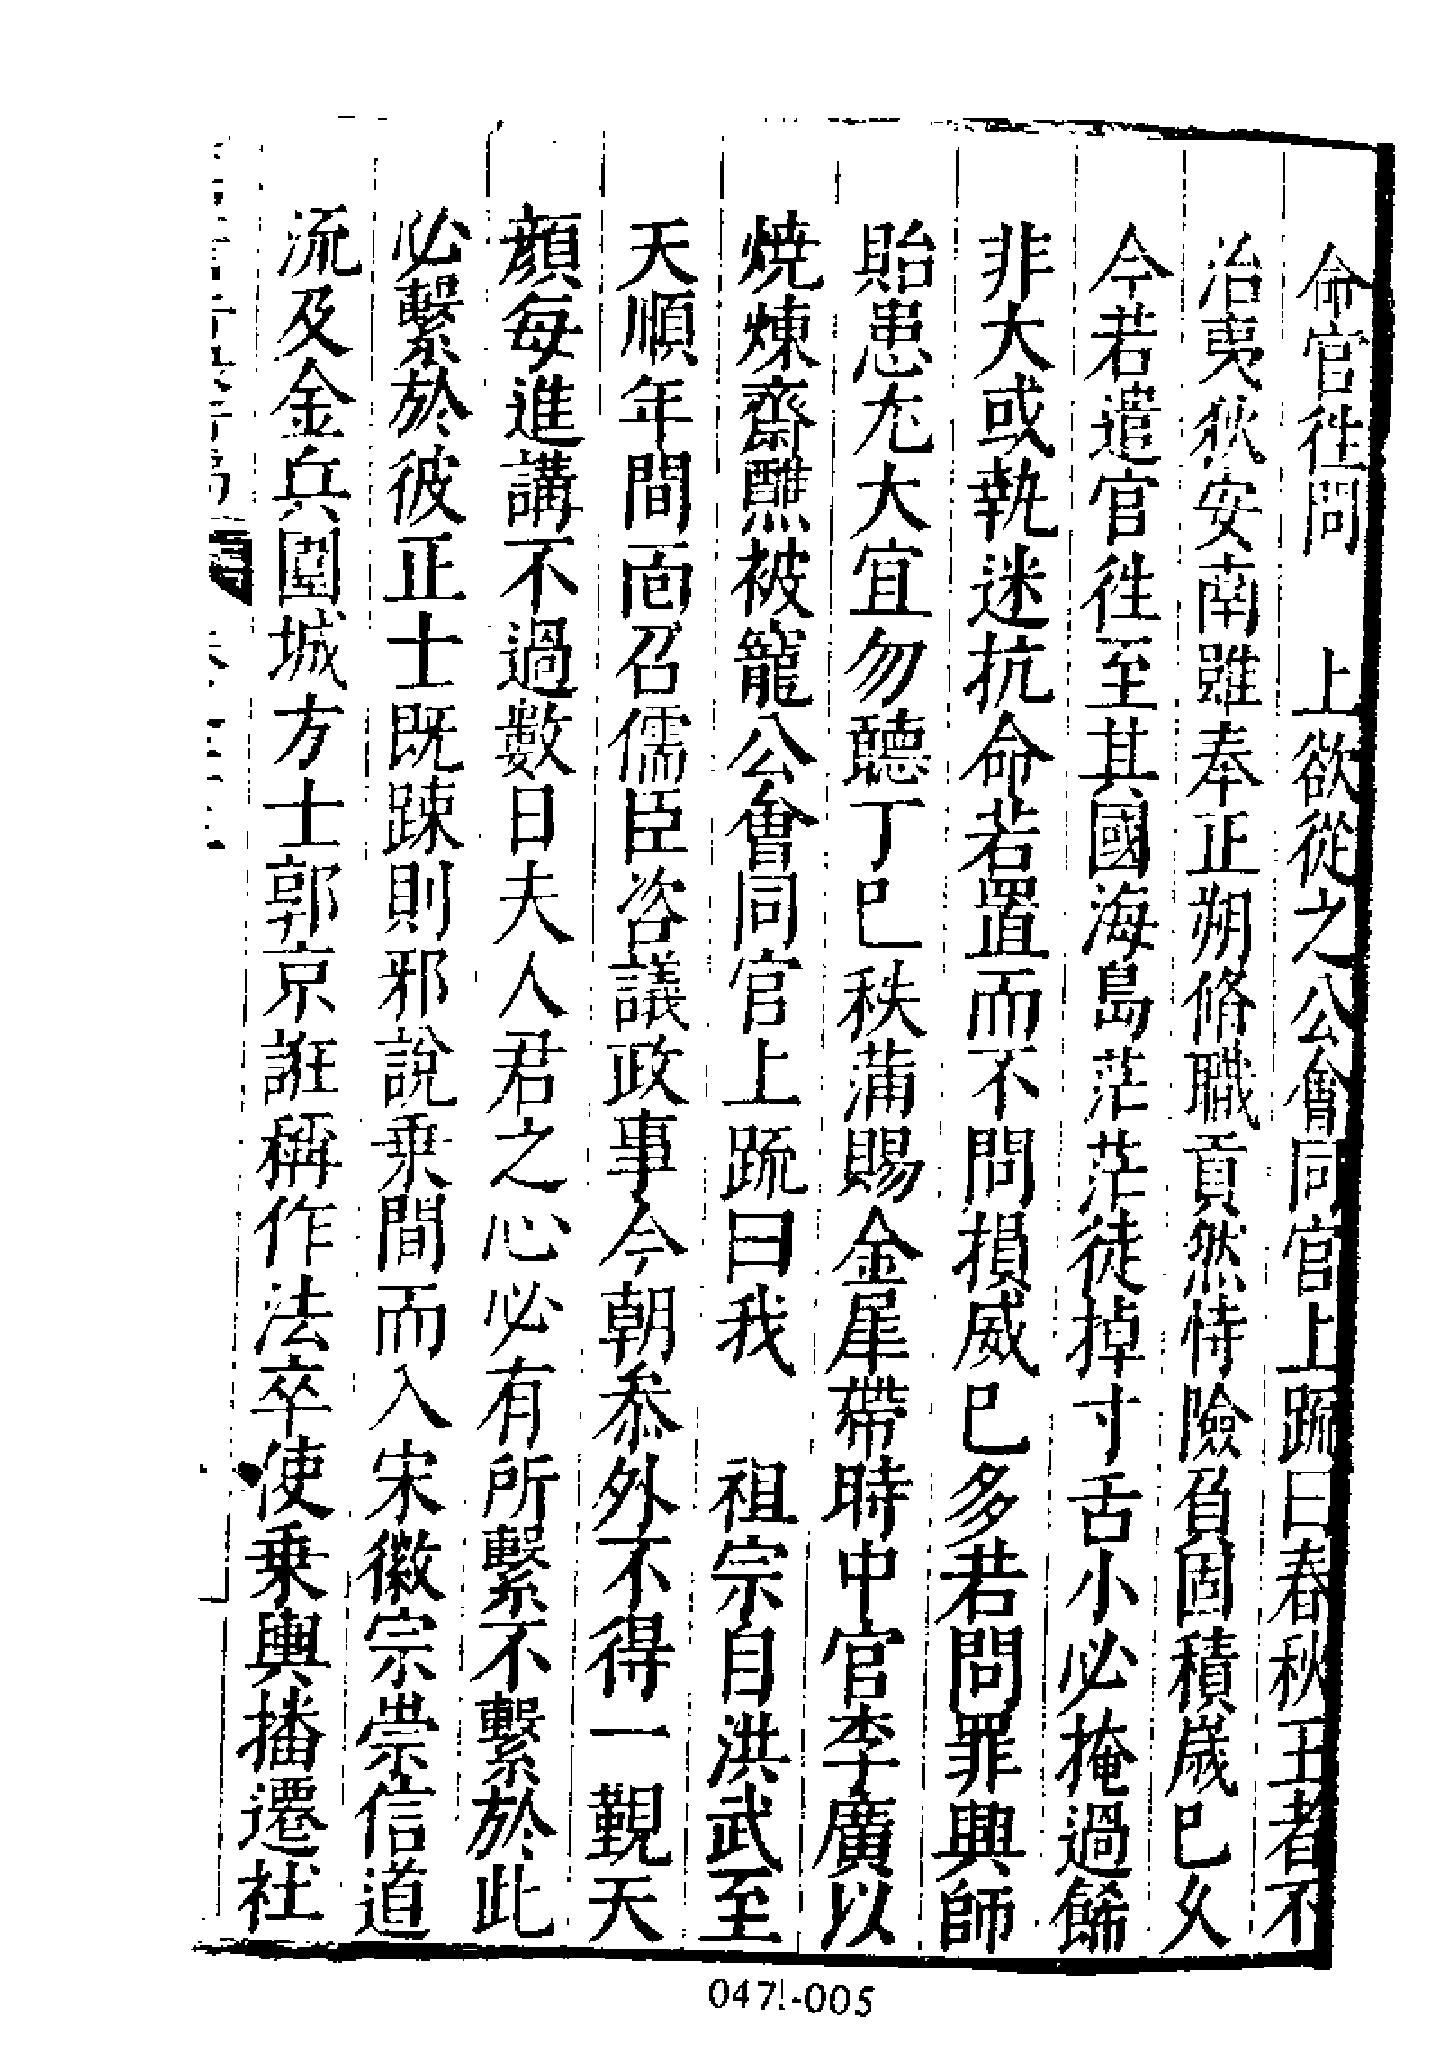 命官徃問　上欲從之公㑹同官上䟽曰春秋王者不
治夷狄安南雖奉正朔脩職貢然恃險負固積歲已久
今若遣官徃至其國海島茫茫徒掉寸舌小必掩過餙
非大或執迷抗命若置而不問損威已多若問罪興師
貽患尤大宜勿聽丁巳秩滿賜金犀帶時中官李廣以
焼煉齋醮被寵公㑹同官上䟽曰我　祖宗自洪武至
天順年間面召儒臣咨議政事今朝叅外不得一覲天
顔每進講不過數日夫人君之心必有所繫不繫於此
必繫於彼正士既踈則邪說乗間而入宋徽宗崇信道
流及金兵圍城方士郭京誑稱作法卒使乗輿播遷社
047!-005